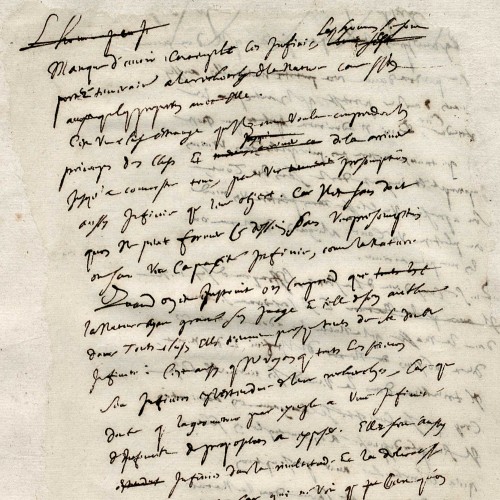 Manque d'avoir contemplé ces infinis les hommes se sont
porté temerairem a la recherche de la nature comme s'ils
avoient quelque proportion avec elle.
C'est une chose estrange qu'ils ont voulu comprendre les
principes des choses et de la arriver
jusqu'a connoistre tout, par une presomption
aussi infinie que leur object. Car il est sans doute
qu'on ne peut former ce dessein sans une presomption
ou sans une capacité infinie, comme la nature.
Quand on est instruit on comprend que
la nature ayant gravé son image et celle de son autheur
dans toutes choses elles tiennent presque toutes de sa double
infinité. C'est ainsi que nous voyons que toutes les sciences
sont infinies en l'estendue de leurs recherches, car qui
doute que la geometrie par exemple a une infinité
d'infinités de propositions a exposer. Elles sont aussi
infinies dans la multitude et la delicatesse
car qui ne voit que ceux qu'on